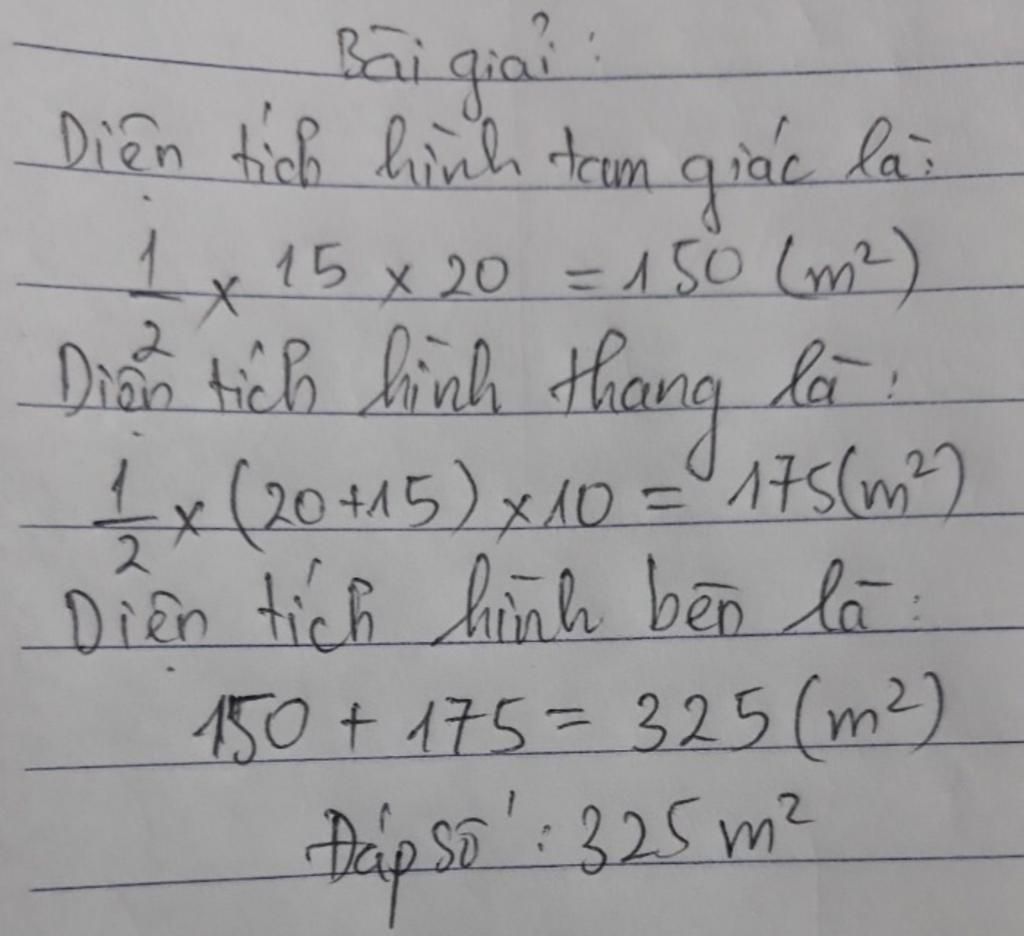 Bài giải:
Diện tích hình tam giác là:
1/2 x 15 x 20 = 150 (m²)
Diện tích hình thang là:
1/2 x (20+15) x 10 = 175 (m²)
Diện tích hình bên là:
150 + 175 = 325 (m²)
Đáp số: 325 m²